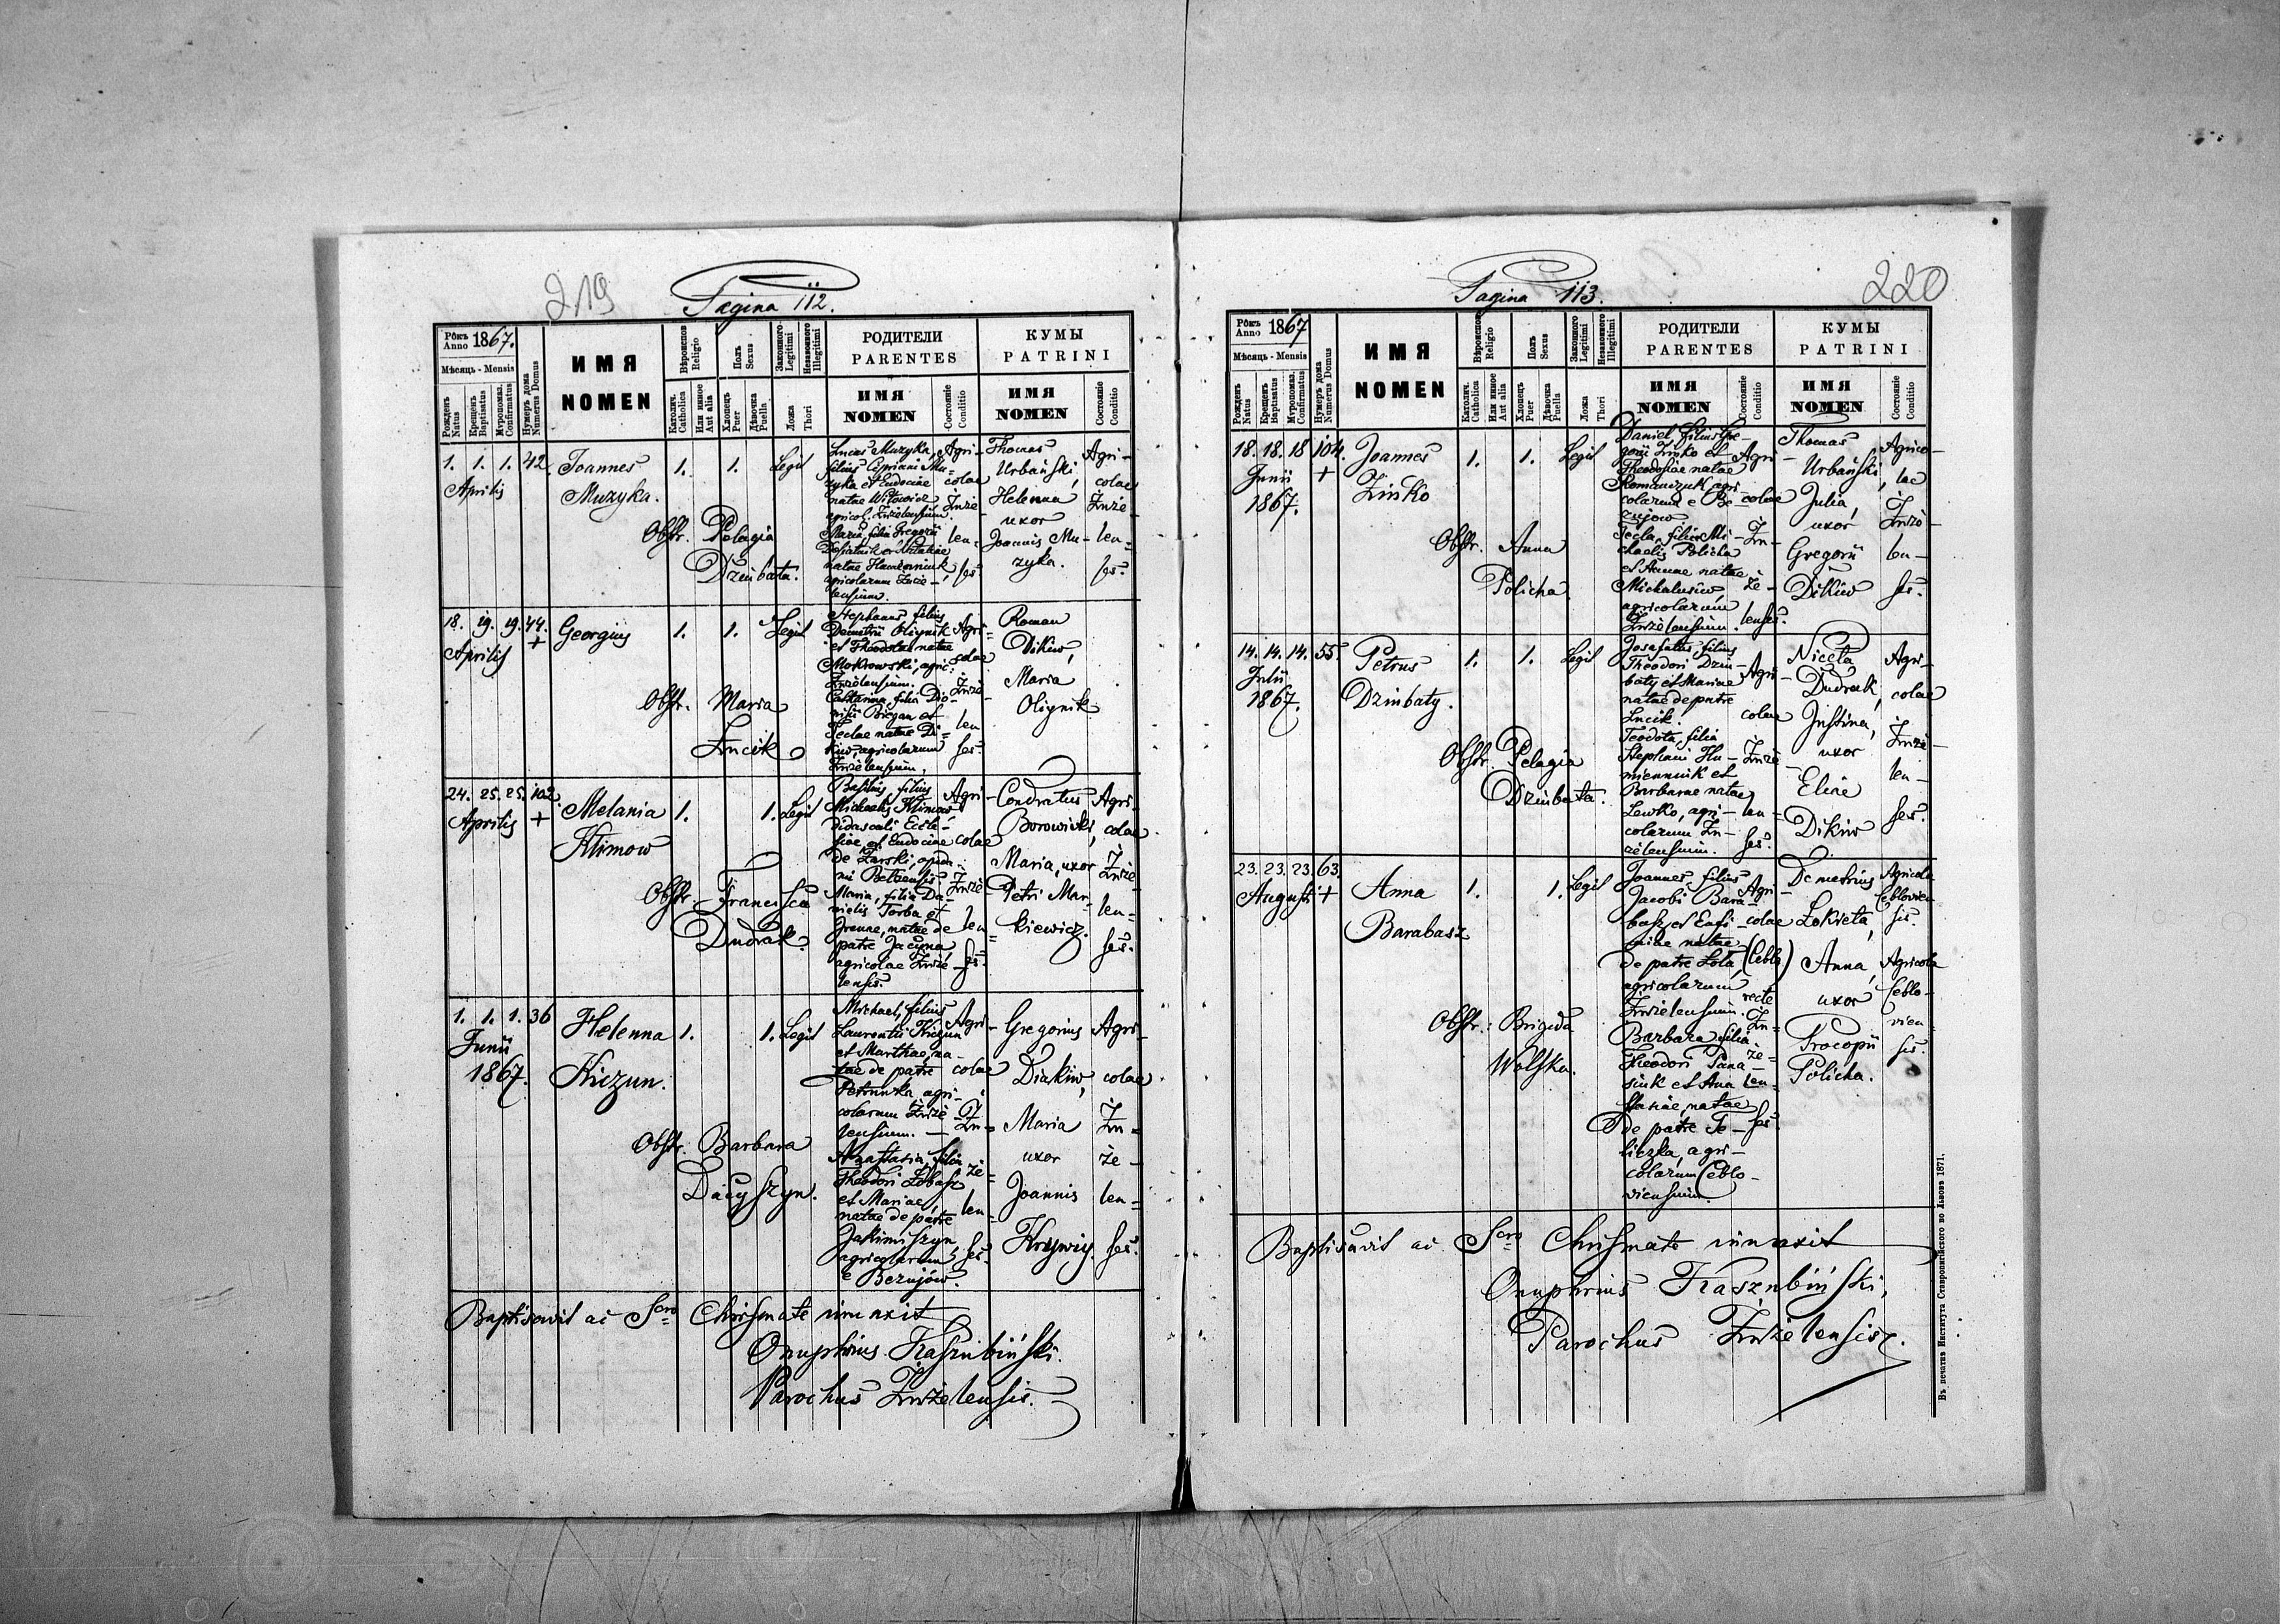 219
Pagina 112.
Рôкъ Anno 1867.
Мѣсяць - Mensis
Рожденъ Natus
Крещенъ Baptisatus
Мѵропомаз. Confirmatus
Нумеръ дома Numerus Domus
ИМЯ
NOMEN
Вѣроисповѣ Religio
Католич. Catholica
Или инное Aut alia
Полъ Sexus
Хлопецъ Puer
Дѣвочка Puella
Законного Legitimi
Незаконного Illegitimi
Ложа Thori
РОДИТЕЛИ
PARENTES
ИМЯ
NOMEN
Состояніе Conditio
КУМЫ
PATRINI
ИМЯ
NOMEN
Состояніе Conditio
1. 1. 1. 42.
Aprilis
Joannes
Muzyka.
1. 1. Legit
Obstr. Pelagia
Dziubata.
Lucas Muzyka,
filius Cipriani Mu-
zyka et Eudociae
natae Witowicz
agricol. Żużelensium.
Maria, filia Gregorii
natae
agricolarum Żuże-
lensium.
Agri-
colae
Żuże-
len-
ses.
Thomas
Urbański,
Helenna
uxor
Joannis Mu-
zyka.
Agri-
colae
Żuże-
len-
ses.
18. 19. 19. 44.
Aprilis +
Georgius
1. 1. Legit
Obstr. Maria
Łucik
Stephanus, filius
Demetrii Oliynik
et Theodoras natae
Mokrowski, agric.
Żużelensium.
Catharina, filia Dio-
nisii Biegan et
Teclae natae Di-
kiw, agricolarum
Żużelensium.
Agri-
colae
Żuże-
len
ses.
Roman
Dikiw,
Maria
Oliynik.
24. 25. 25. 102
Aprilis +
Melania
Klimow
1. 1. Legit
Obstr. Francisca
Dudrak.
Basilius, filius
Michaelis Klimow
didascali Eccle-
siae et Eudociae
de Zarski, opidi-
ni Belzensis
Maria, filia Da-
nielis Torba et
Irenae, natae de
patre Jacyna,
agricolae Żuże-
lensis.
Agri-
colae
Żuże-
len-
ses.
Condratus
Borowiwki,
Maria, uxor
Petri Mar-
kiewicz.
Agri-
colae
Żuże-
len-
ses.
1. 1. 1. 36
Junii
1867.
Helenna
Kiczun.
1. 1. Legit
Obstr. Barbara
Dacyszyn.
Michael, filius
Laurentii Kiczun
et Marthae, na-
tae de patre
Petruwka agri-
colarum Żuże-
lensium.
Anastasia, filia
Theodori Łobasz
et Mariae,
natae de patre
Jakimiszyn
agricolarum
e Bezujów.
Agri-
colae
Żu-
że-
len-
ses.
Gregorius
Diakiw,
Maria
uxor
Joannis
Krzywiy.
Agri-
colae
Żu-
że-
len-
ses.
Baptisavit ac Scro Chrismate inunxit
Onuphrius Kaszubiński.
Parochus Żużelensis.
220
Pagina 113.
Рôкъ Anno 1867
Мѣсяць - Mensis
Рожденъ Natus
Крещенъ Baptisatus
Мѵропомаз. Confirmatus
Нумеръ дома Numerus Domus
ИМЯ
NOMEN
Вѣроисповѣ Religio
Католич. Catholica
Или инное Aut alia
Полъ Sexus
Хлопецъ Puer
Дѣвочка Puella
Законного Legitimi
Незаконного Illegitimi
Ложа Thori
РОДИТЕЛИ
PARENTES
ИМЯ
NOMEN
Состояніе Conditio
КУМЫ
PATRINI
ИМЯ
NOMEN
Состояніе Conditio
18. 18. 18 104.
Junii +
1867.
Joannes
Zinko
1. 1. Legit
Obstr. Anna
Policha.
Daniel, filius Gre-
gorii Zinko et
Theodosiae natae
Romanczuk agri-
colarum e Be-
zujow
Tecla, filia Mi-
chaelis Policha
et Annae natae
Michalusiw,
agricolarum
Żużelensium.
Agri-
colae
Żu-
że-
lenses.
Thomas
Urbański,
Julia,
uxor
Gregorii
Dikiw
Agrico-
lae
Żuże-
len-
ses.
14. 14. 14. 55.
Julii
1867.
Petrus
Dziubaty.
1. 1. Legit
Obstr. Pelagia
Dziubata.
Josafatus, filius
Theodori Dziu-
baty et Mariae
natae de patre
Łucik.
Teodota, filia
Stephani Hu-
miennik et
Barbarae natae
Lewko, agri-
colarum Żu-
żelensium.
Agri-
colae
Żuże-
len-
ses.
Niceta
Dudrak,
Justina,
uxor
Eliae
Dikiw
Agri-
colae
Żuże-
len-
ses.
23. 23. 23. 63.
Augusti +
Anna
Barabasz
1. 1. Legit
Obstr. Brigida
Wolska.
Joannes, filius
Jacobi Bara-
basz et Eufi-
miae natae
de patre Łota,
agricolarum
Żużelensium.
Barbara filia
Theodori Pana-
siuk et Ana
stasiae, natae
de patre Te-
liczka, agri-
colarum Ceblo-
viensium.
Agri-
colae
(Ceblo)
recte
Żu-
że-
len-
ses.
Demetrius
Łokieta,
Anna,
uxor
Procopii
Policha.
Agricola
Cebloviensis.
Agricola
Ceblo-
vien-
sis.
Baptisavit ac Scro Chrismate inunxit
Onuphrius Kaszubiński,
Parochus Żużelensis.
Въ печатнѣ Института Ставропигійского во Львовѣ 1871.